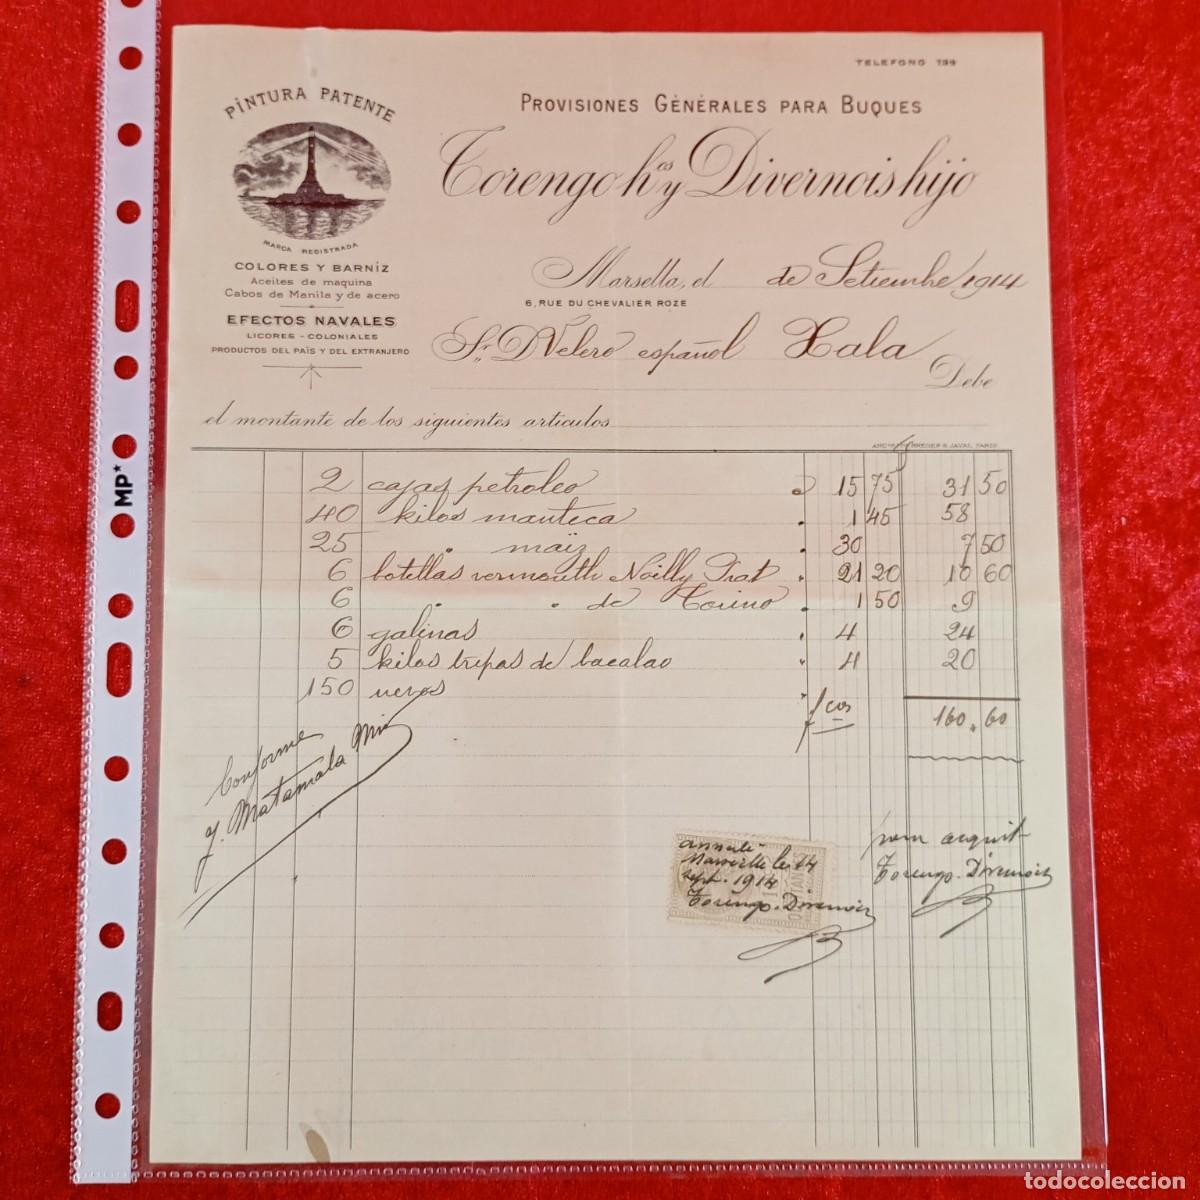 TELEFONO 139
PINTURA PATENTE
PROVISIONES GÉNÉRALES PARA BUQUES
Torengo hos y Divernois hijo
MARCA REGISTRADA
COLORES Y BARNIZ
Aceites de maquina
Cabos de Manila y de acero
EFECTOS NAVALES
LICORES - COLONIALES
PRODUCTOS DEL PAÍS Y DEL EXTRANJERO
Marsella, el de Setiembre 1914
6, RUE DU CHEVALIER ROZE
Sr. D. Velero español Xala
Debe
el montante de los siguientes articulos
BREGER & JAVAL, PARIS
2 cajas petroleo a 15 75 31 50
40 kilos manteca " 1 45 58
25 " maïz " 30 7 50
6 botellas vermouth Noilly Prat " 21 20 10 60
6 " " de Torino " 1 50 9
6 galinas " 4 24
5 kilos tripas de bacalao " 4 20
150 uevos "
fcos 160.60
Conforme
J. Matamala
pour acquit
Torengo. Divernois
Marseille le 14
sept. 1914
Torengo. Divernois
MP*
todocoleccion